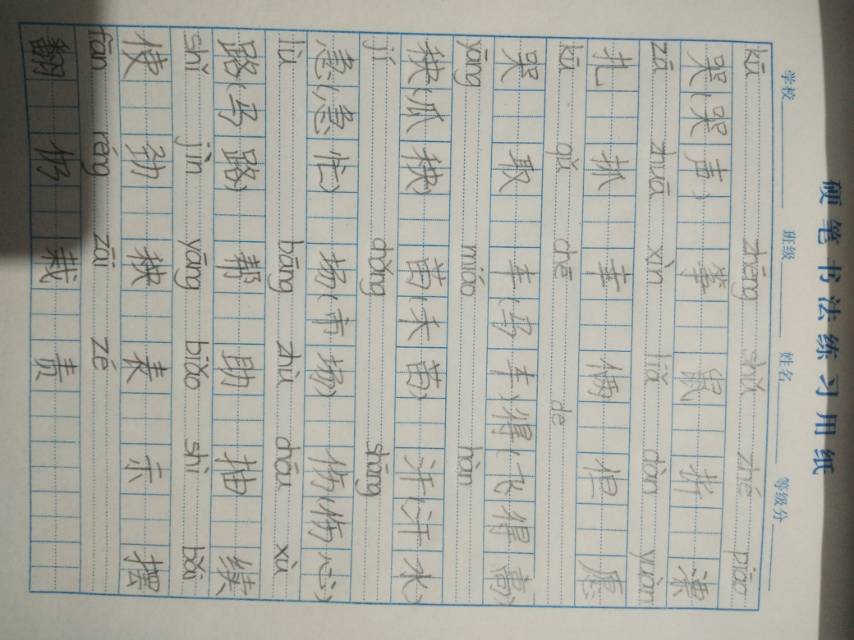 硬笔书法练习用纸
学校 班级 姓名 等级分
kū zhēng shǔ zhé piāo
哭(哭声) 筝 鼠 折 漂
zā zhuā xìn liǎ dàn yuàn
扎 抓 幸 俩 但 愿
kū qǔ chē de
哭 取 车(马车)得(飞得高)
yāng miáo hàn
秧(瓜秧) 苗(禾苗) 汗(汗水)
jí chǎng shāng
急(急忙) 场(市场) 伤(伤心)
lù bāng zhù chōu xù
路(马路) 帮 助 抽 续
shǐ jìn yāng biǎo shì bǎi
使 劲 秧 表 示 摆
fān réng zāi zé
翻 仍 栽 责